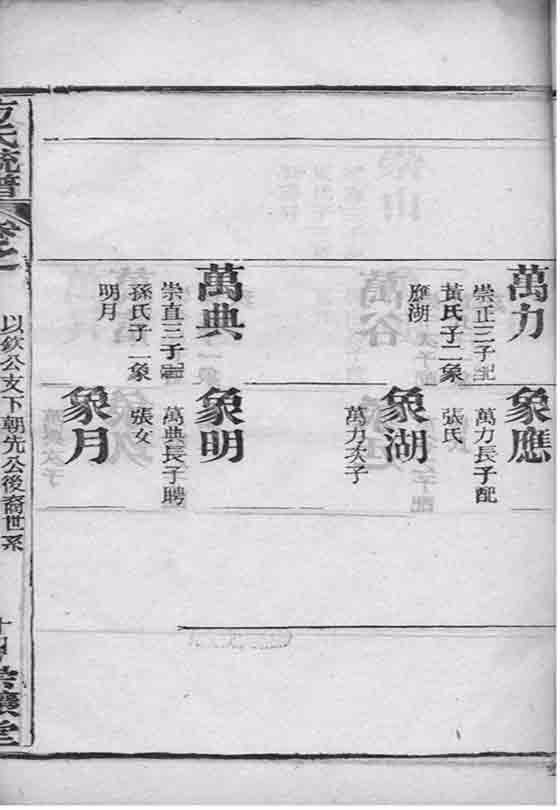 萬力
崇正三子配
黃氏子二象
應湖
象應
萬力長子配
張氏
象湖
萬力次子
萬典
崇直三子配
孫氏子二象
明月
象明
萬典長子聘
張女
象月
方氏統譜
卷之
以欽公支下朝先公後裔世系